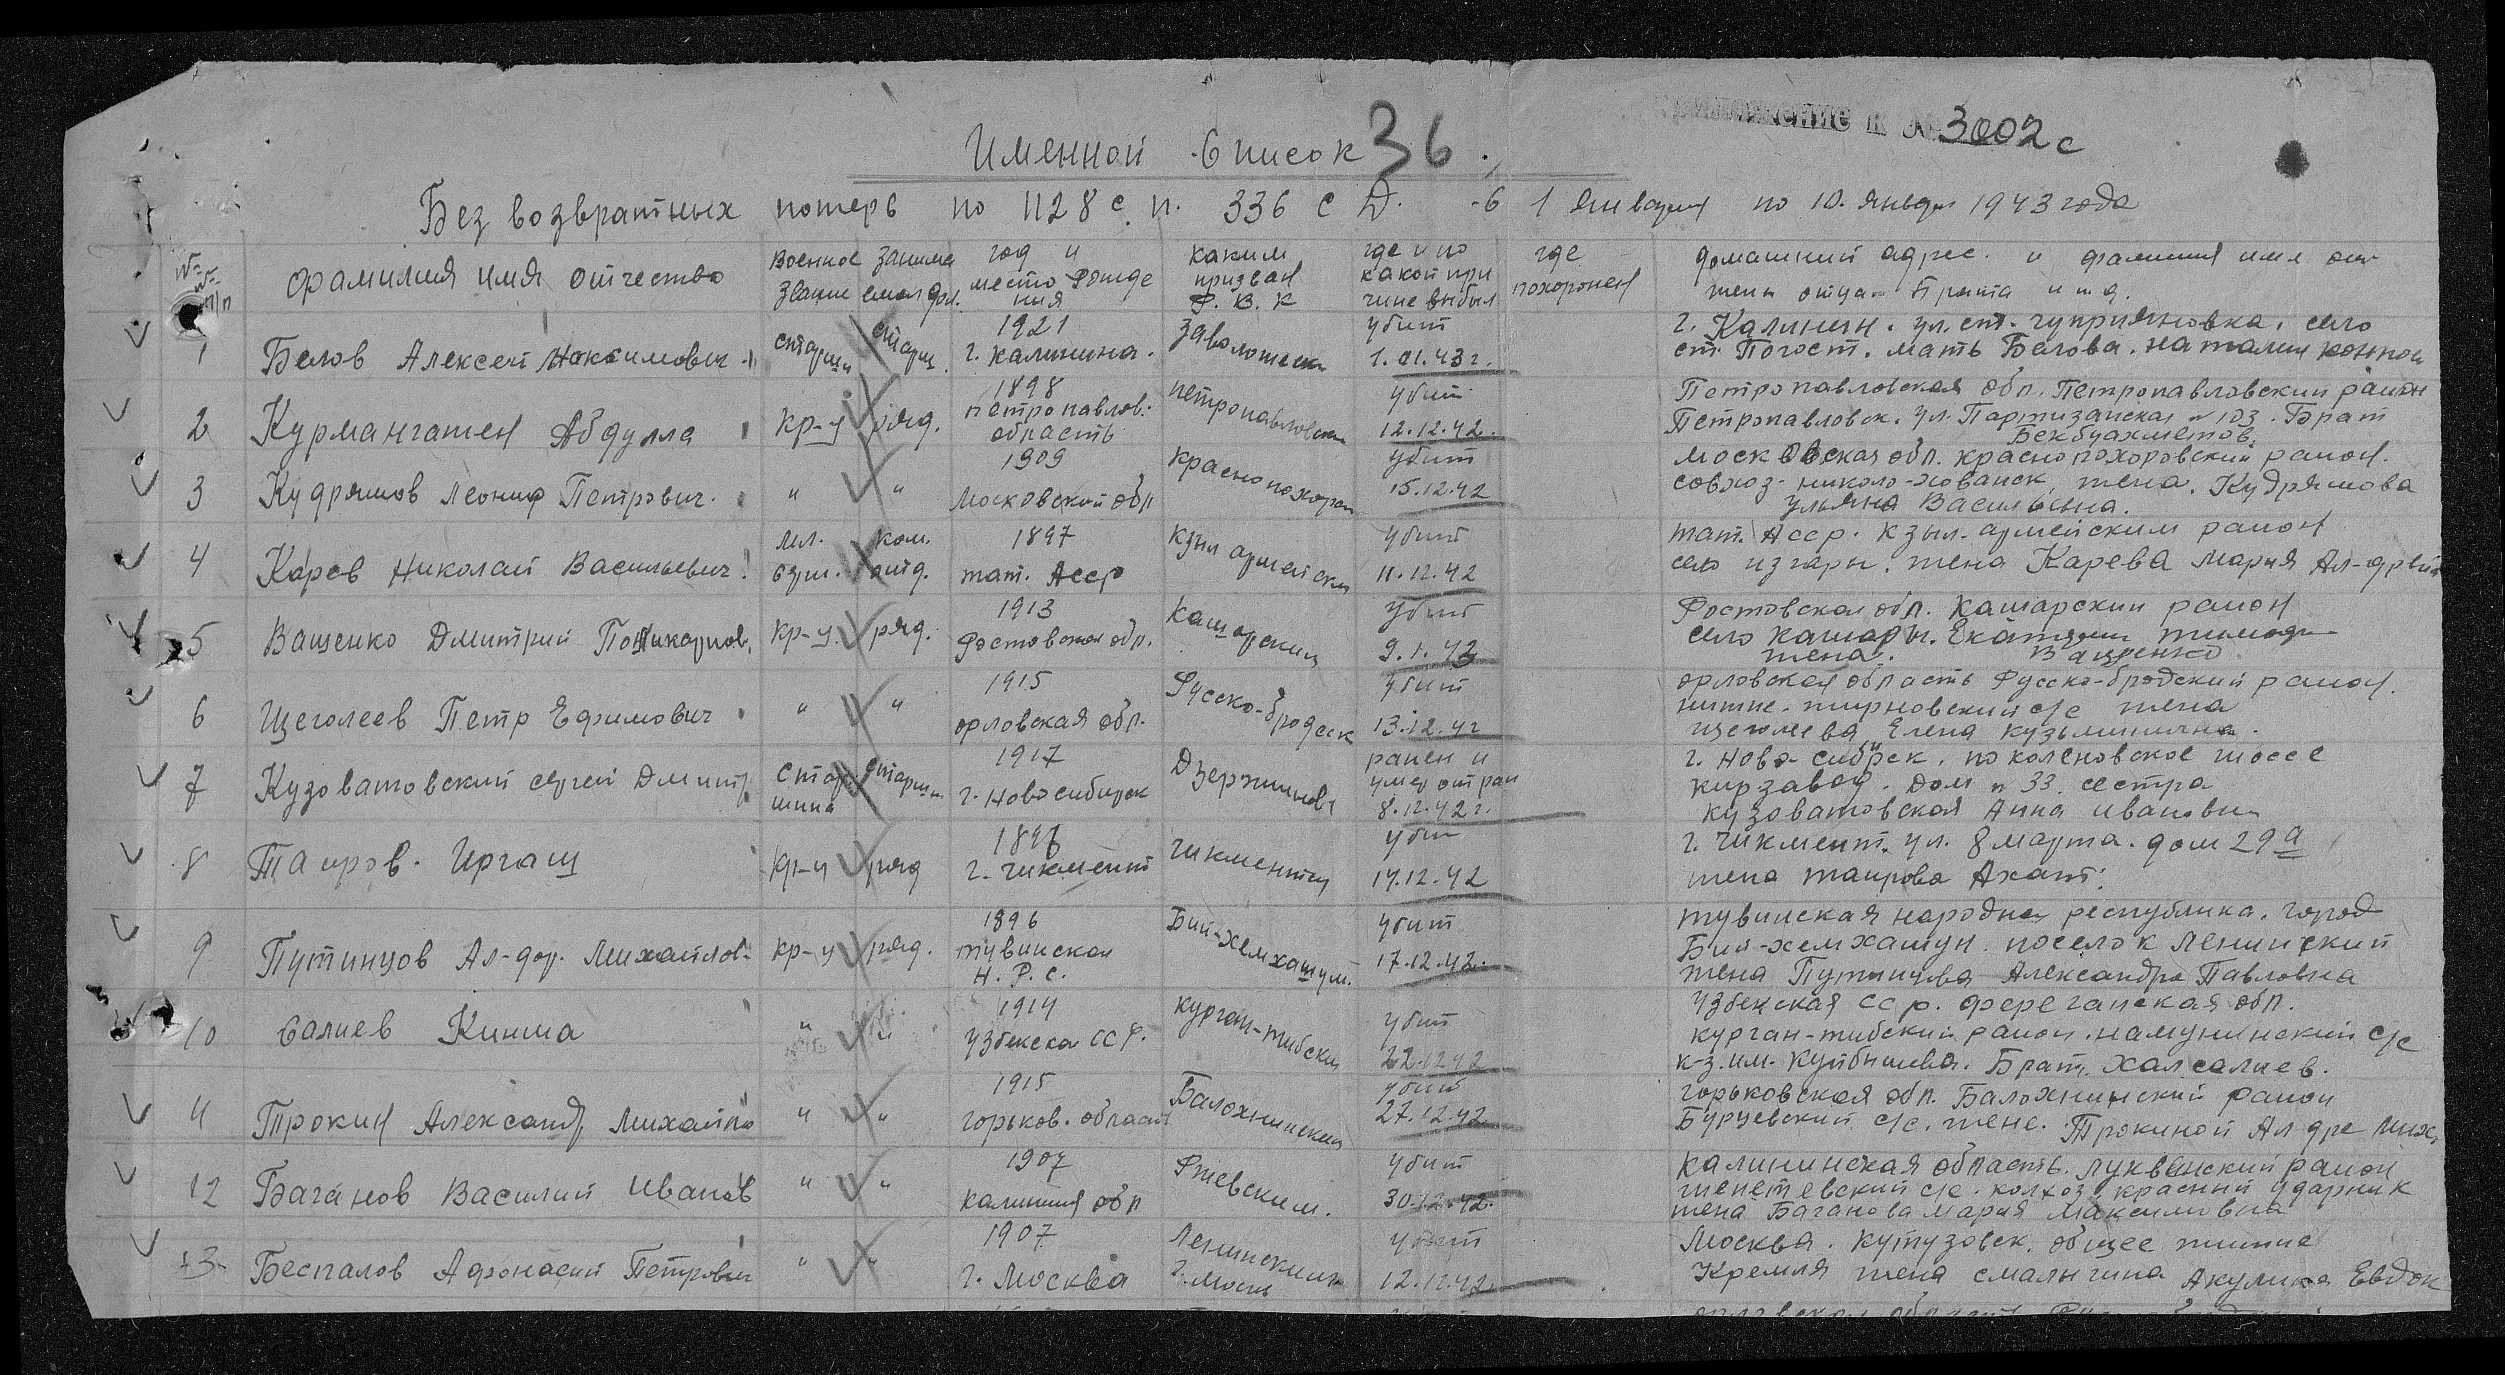 Приложение к № 3002 с
Именной Список 36
Без возвратных потерь по 1128 с.п. 336 с Д. с 1 января по 10. января 1943 года
№ № п/п
фамилия имя отчество
Военное звание
занима емая дол.
год и место рожде ния
каким призван Р. В. К
где и по какой при чине выбыл
где похоронен
домашний адрес. и фамилия имя от. жены отца Брата и т д.
1 Белов Алексей Максимович старш. старш. 1921 г. Калинина. убит 1.01.43 г.
г. Калинин. ул. ст. чуприяновка, село
ст. Погост. мать Белова. наталия
2 Курмангатен Абдулла кр-ц ряд. 1898 петропавлов. область петропавловск убит 12.12.42.
Петропавловская обл. Петропавловский район
Петропавловск. ул. Партизанская № 103. Брат
Бекбуахметов.
3 Кудряшов Леонид Петрович. " " 1909 Московской обл Краснопахорск убит 15.12.42
московская обл. краснопохоровский район.
совхоз-николо-хованск, жена. Кудряшова
Ульяна Васильевна.
4 Карев Николай Васильевич. мл. ком. отд. 1897 тат. Асср Кзыл армейским убит 11.12.42
тат. Асср. Кзыл-армейским район
село изгары. жена Карева Мария
5 Ващенко Дмитрий Поликарпов. кр-ц. ряд. 1913 Ростовская обл. Кашарским убит 9.1.43
Ростовская обл. Кашарский район
село кашары.
жена. Ващенко
6 Щеголеев Петр Ефимович " " 1915 орловская обл. Русско-бродск убит 13.12.42
орловская область Русско-бродский район.
с/с жена
щеголева Елена кузьминична.
7 Кузоватовский сергей Дмитр. Стар шина старши 1917 г. Новосибирск Дзержинск ранен и умер от ран 8.12.42 г.
г. Ново-сибирск. шоссе
кирзавод. Дом № 33. сестра
кузоватовская Анна ивановн
8 Таиров. Иргаш кр-ц ряд 1896 г. чикмент чикментск убит 17.12.42
г. чикмент. ул. 8 марта. дом 29 а
жена таирова Ахат.
9 Путинцов Ал-др. Михайлов. кр-ц ряд. 1896 тувинская Н. Р. с. Бий-хемхашун. убит 17.12.42.
тувинская народная республика. город
Бий-хемхашун. поселок Ленинский
жена Путинцова Александра Павловна
10 Салиев Кинша " " 1914 узбекска ССР. курган-тибским убит 22.12.42
узбекская сср. ферганская обл.
курган-тибский район. с/с
к-з. им. куйбышева. Брат. Халсалиев.
11 Трокин Александ Михайло " " 1915 горьков. область Балохнинским убит 27.12.42
горьковская обл. Балохнинский район
с/с. жене. Трокиной Ал дре Мих.
12 Баганов Василий Иванов " " 1907 калинин обл Ржевским. убит 30.12.42.
калининская область. район
с/с. колхоз красный ударник
жена Баганова мария Максимовна
13 Беспалов Афонасий Петрович " " 1907 г. Москва Ленинским г. Москв убит 12.12.42.
Москва. кутузовск. общее
Кремля жена Акулина Евдок